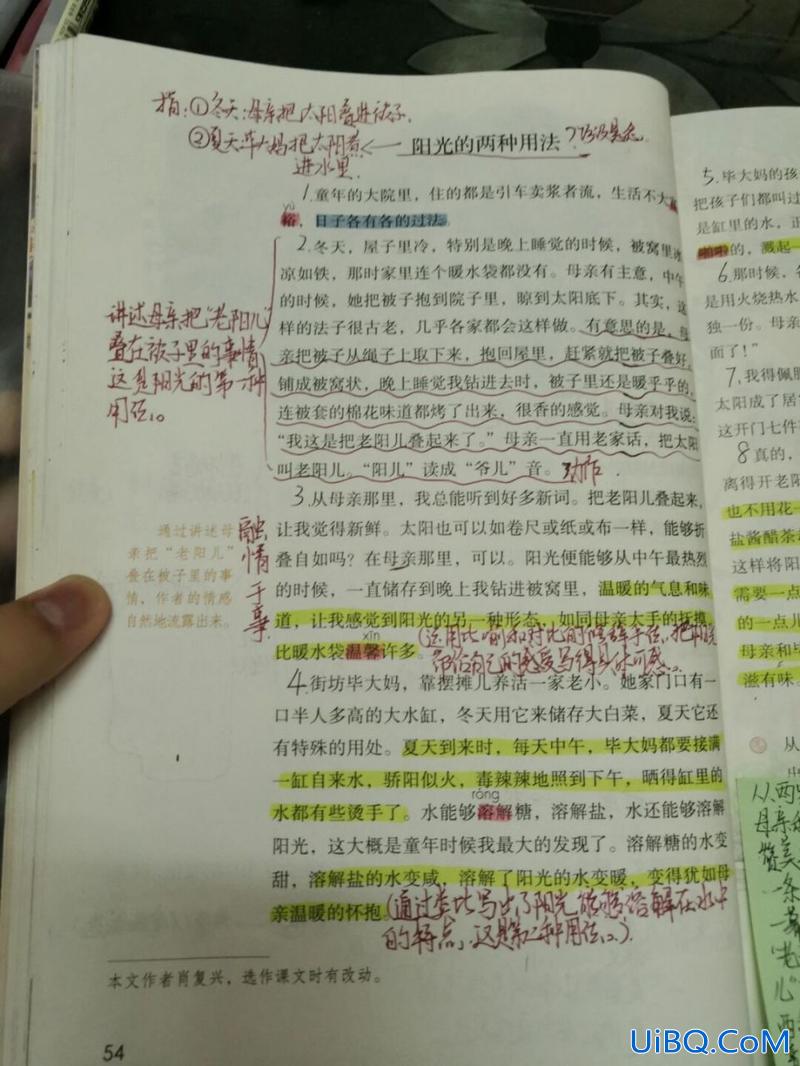 指:①冬天:母亲把太阳叠进被子.
②夏天毕大妈把太阳煮
进水里
阳光的两种用法
1.童年的大院里,住的都是引车卖浆者流,生活不大
yù
裕,日子各有各的过法。
2.冬天,屋子里冷,特别是晚上睡觉的时候,被窝里冰
凉如铁,那时家里连个暖水袋都没有。母亲有主意,中午
的时候,她把被子抱到院子里,晾到太阳底下。其实,这
样的法子很古老,几乎各家都会这样做。有意思的是,母
亲把被子从绳子上取下来,抱回屋里,赶紧就把被子叠好,
铺成被窝状,晚上睡觉我钻进去时,被子里还是暖乎乎的,
连被套的棉花味道都烤了出来,很香的感觉。母亲对我说:
“我这是把老阳儿叠起来了。”母亲一直用老家话,把太阳
叫老阳儿。“阳儿”读成“爷儿”音。 动作.
讲述母亲把“老阳儿”
叠在被子里的事情
这是阳光的第一种
用法。
3.从母亲那里,我总能听到好多新词。把老阳儿叠起来,
让我觉得新鲜。太阳也可以如卷尺或纸或布一样,能够折
叠自如吗?在母亲那里,可以。阳光便能够从中午最热烈
的时候,一直储存到晚上我钻进被窝里,温暖的气息和味
道,让我感觉到阳光的另一种形态,如同母亲大手的抚摸,
xīn
比暖水袋温馨许多。
(运用比喻和对比的修辞手法,把阳光
带给自己的感受写得具体可感。)
通过讲述母
亲把“老阳儿”
叠在被子里的事
情,作者的情感
自然地流露出来。
融情于事
4.街坊毕大妈,靠摆摊儿养活一家老小。她家门口有一
口半人多高的大水缸,冬天用它来储存大白菜,夏天它还
有特殊的用处。夏天到来时,每天中午,毕大妈都要接满
一缸自来水,骄阳似火,毒辣辣地照到下午,晒得缸里的
水都有些烫手了。水能够溶解糖,溶解盐,水还能够溶解
róng
阳光,这大概是童年时候我最大的发现了。溶解糖的水变
甜,溶解盐的水变咸,溶解了阳光的水变暖,变得犹如母
亲温暖的怀抱。
(通过类比写出了阳光能够溶解在水中
的特点,这是第二种用法。)
本文作者肖复兴,选作课文时有改动。
54
5.毕大妈的孩
把孩子们都叫过
是缸里的水,正
的,溅起一
6.那时候,
是用火烧热水
独一份。母亲
面了!”
7.我得佩服
太阳成了居
这开门七件
8真的,
离得开老阳
也不用花一
盐酱醋茶
这样将阳
需要一点
的一点儿
母亲和毕
滋有味。
从
从两
母亲和
赞美
一条
“老
儿”
两
UiBQ.CoM